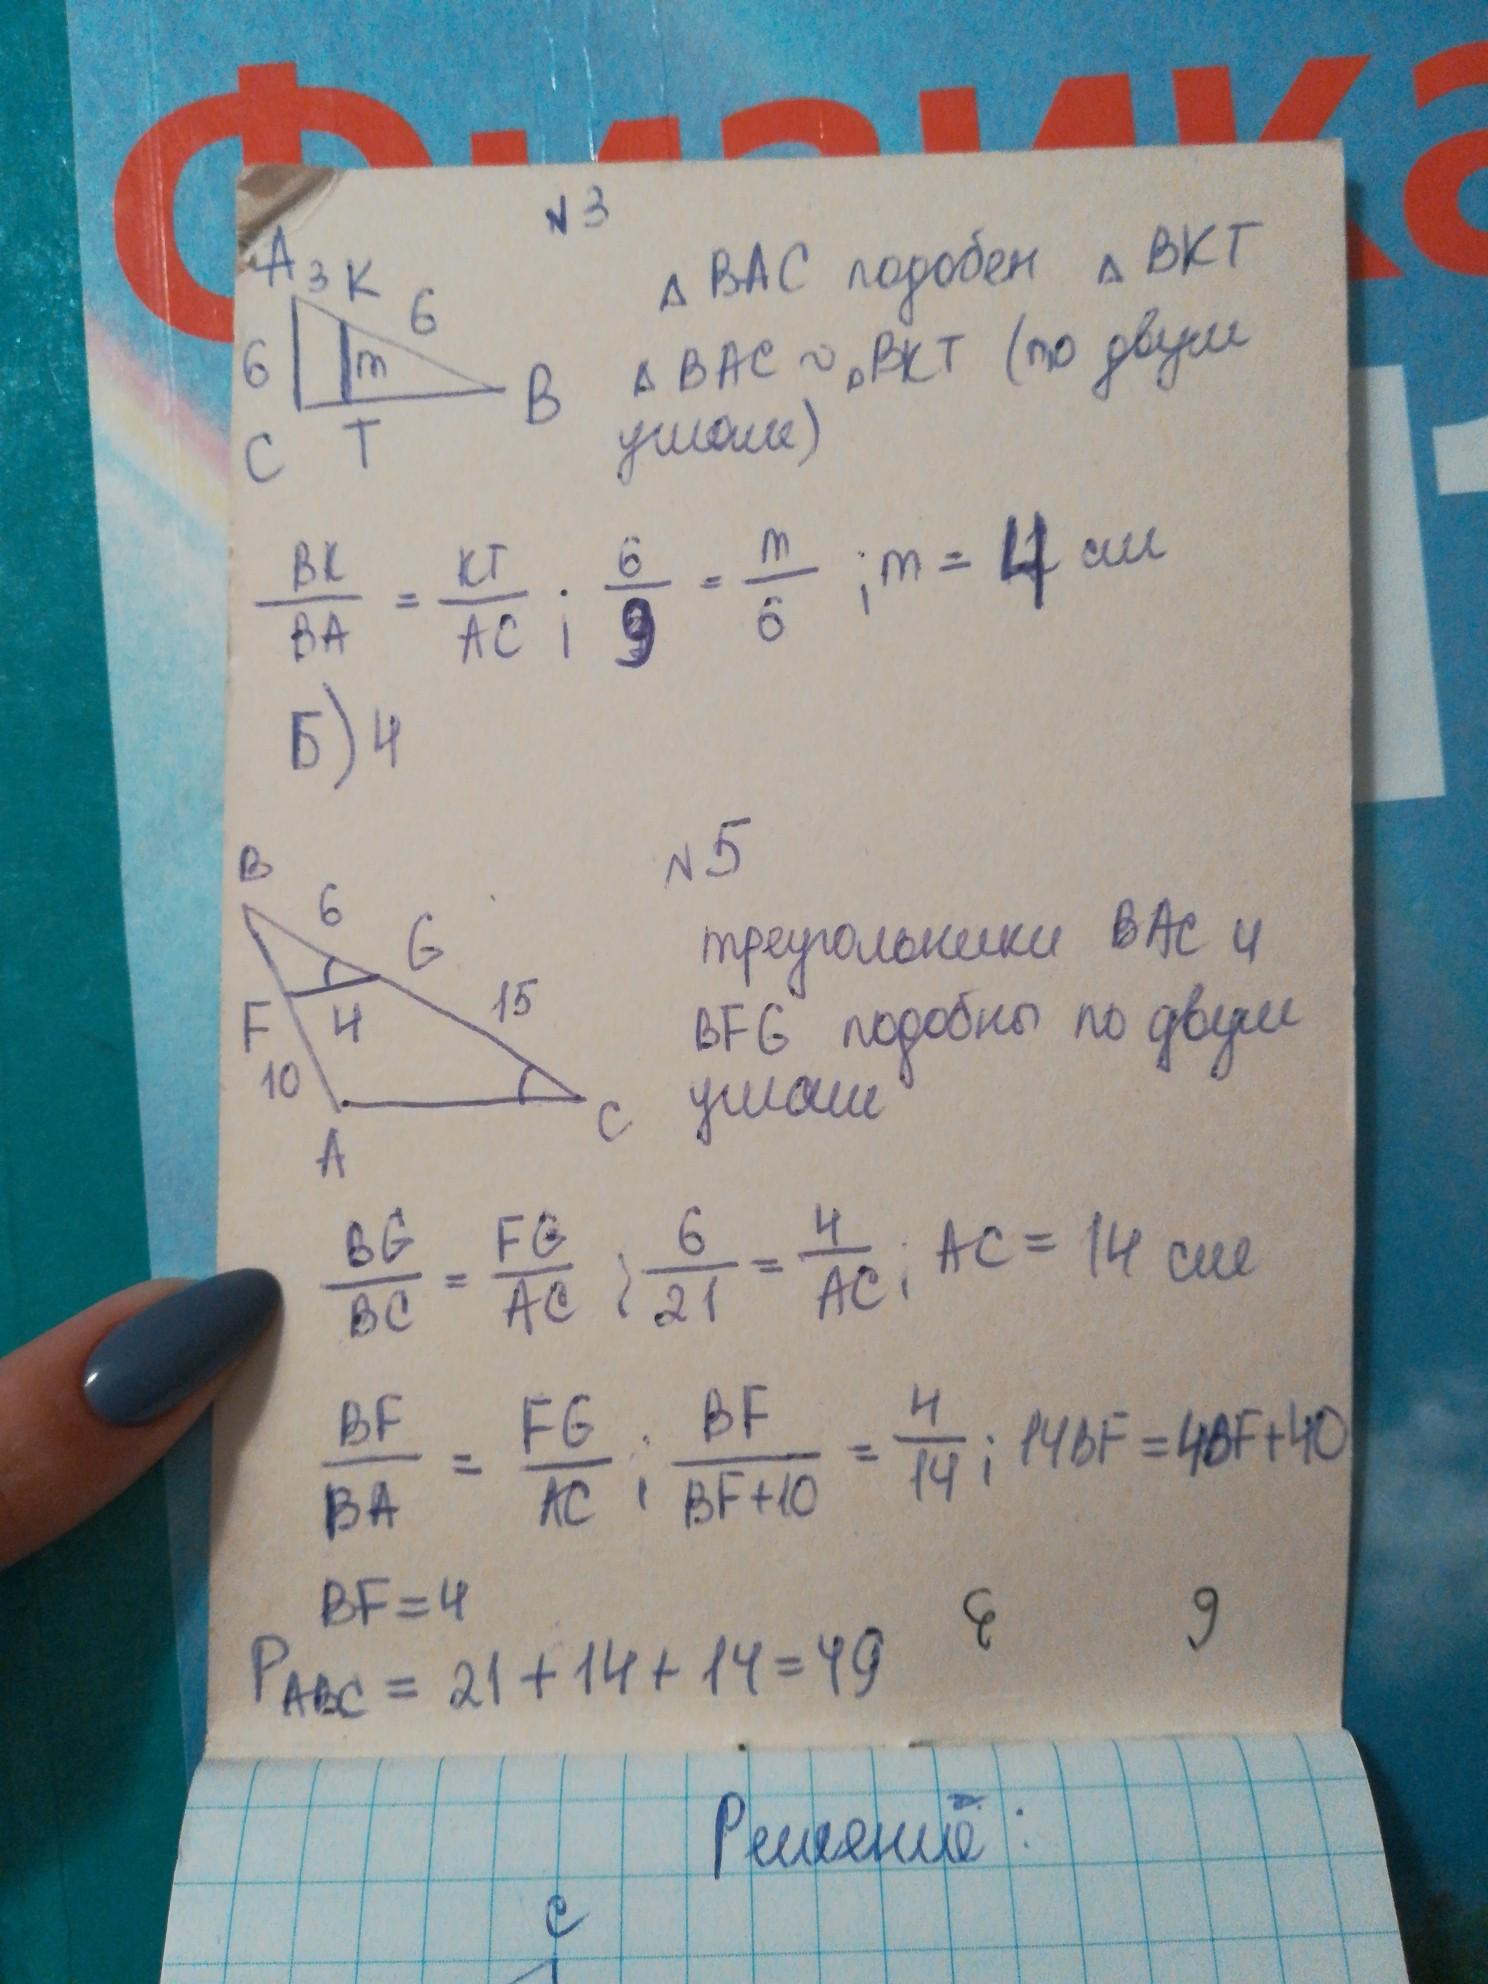 Физика
№3
A 3 K
6
6
m
B
C T
△ BAC подобен △ BKT
△ BAC ~ △ BKT (по двум
углам)
BK/BA = KT/AC ; 6/9 = m/6 ; m = 4 см
Б) 4
№5
B
6
G
F 4 15
10
A
C
треугольники BAC и
BFG подобны по двум
углам
BG/BC = FG/AC ; 6/21 = 4/AC ; AC = 14 см
BF/BA = FG/AC ; BF/BF+10 = 4/14 ; 14BF = 4BF+40
BF = 4
P ABC = 21 + 14 + 14 = 49
6
Решение:
C